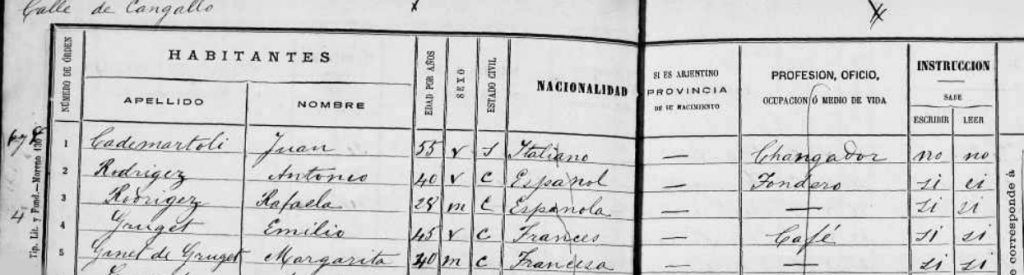 Calle de Cangallo
NÚMERO DE ÓRDEN HABITANTES EDAD POR AÑOS SEXO ESTADO CIVIL NACIONALIDAD SI ES ARJENTINO PROVINCIA DE SU NACIMIENTO PROFESION, OFICIO, OCUPACION Ó MEDIO DE VIDA INSTRUCCION
SABE
APELLIDO NOMBRE ESCRIBIR LEER
1 Cademartoli Juan 55 v s Italiano — Changador no no
2 Rodrigez Antonio 40 v c Español — Fondero si si
3 Rodrigez Rafaela 28 m c Española — — si si
4 Gruget Emilio 45 v c Frances — Café si si
5 Ganet de Gruget Margarita 40 m c Francesa — — si si
Tip. Lit. y Fund.—Moreno
corresponde á